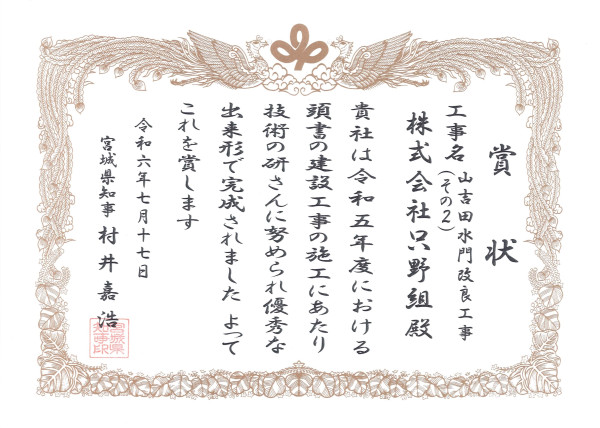 賞状
工事名 山吉田水門改良工事
(その2)
株式会社只野組 殿
貴社は令和五年度における
頭書の建設工事の施工にあたり
技術の研さんに努められ優秀な
出来形で完成されました よって
これを賞します
令和六年七月十七日
宮城県知事 村井嘉浩
宮城県知事印